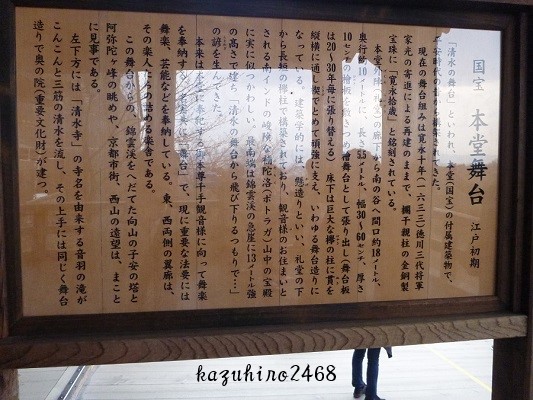 国宝 本堂舞台 江戸初期
「清水の舞台」といわれ、本堂(国宝)の付属建築物で、
平安時代の昔から構築されてきた。
現在の舞台組みは寛永十年(一六三三)徳川三代将軍
家光の寄進による再建のままで、欄干親柱の金銅製
宝珠に「寛永拾歳」と銘刻されている。
本堂外陣(礼堂)の廊下から南の谷へ間口約18メートル、
奥行約10メートルに、長さ5.5メートル、幅30〜60センチ、厚さ
10センチの桧板を敷きつめ桧舞台として張り出し(舞台板
は20〜30年毎に張り替える)床下は巨大な欅の柱に貫を
縦横に通し楔でとめて頑強に支え、いわゆる舞台造りに
なっている。建築学的には、懸造りといい、礼堂の下
から長垣の欅柱で構築されており、観音様のお住まいと
される南インドの峻険な補陀洛(ポトラガ)山中の宝殿
に実に似つかわしい。最南端は錦雲渓の急崖に13メートル強
の高さで建ち「清水の舞台から飛び下りるつもりで…」
の諺を生んできた。
本来は本堂に奉祀する御本尊千手観音様に向って舞楽
を奉納する正真正銘の「舞台」で、現に重要な法要には
舞楽、芸能などを奉納している。東、西両側の翼廊は、
その楽人たちの詰める楽舎である。
この舞台からの、錦雲渓をへだてた向山の子安の塔と
阿弥陀ヶ峰の眺めや、京都市街、西山の遠望は、まこと
に見事である。
左下方には「清水寺」の寺名を由来する音羽の滝が
こんこんと三筋の清水を流し、その上手には同じく舞台
造りで奥の院(重要文化財)が建つ。
kazuhiro2468